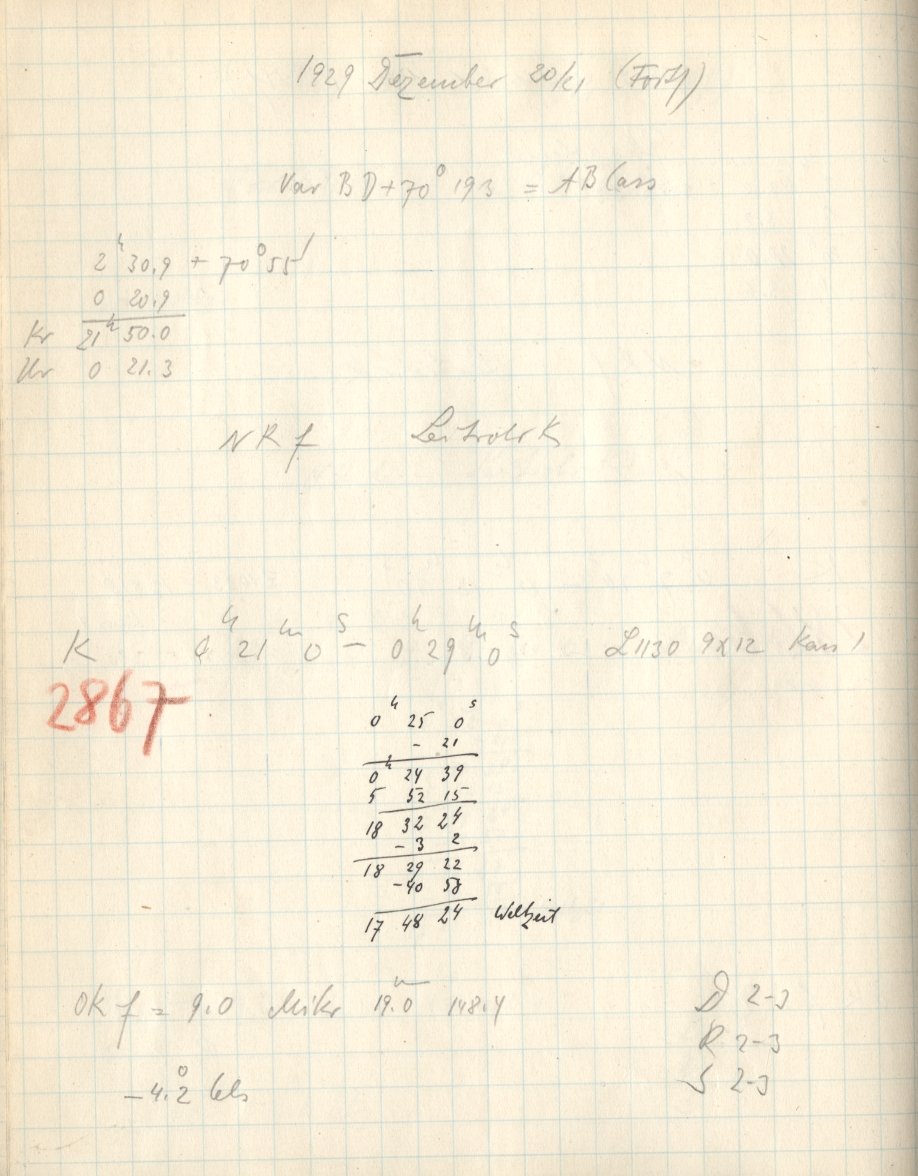 1929 Dezember 20/21 (Forts)
Var BD+70° 193 = AB Cass
2ʰ 30.9 + 70° 55'
0 20.9
Kr 21ʰ 50.0
Uhr 0 21.3
NR f Leitrohr K
K 0ʰ 21ᵐ 0ˢ – 0ʰ 29ᵐ 0ˢ L1130 9x12
2867
0ʰ 25 0ˢ
- 21
0ʰ 24 39
5 52 15
18 32 24
- 3 2
18 29 22
-40 58
17 48 24 Weltzeit
OK f = 9.0 Mikr 19.0 148.4 D 2-3
R 2-3
-4.2° Cels S 2-3